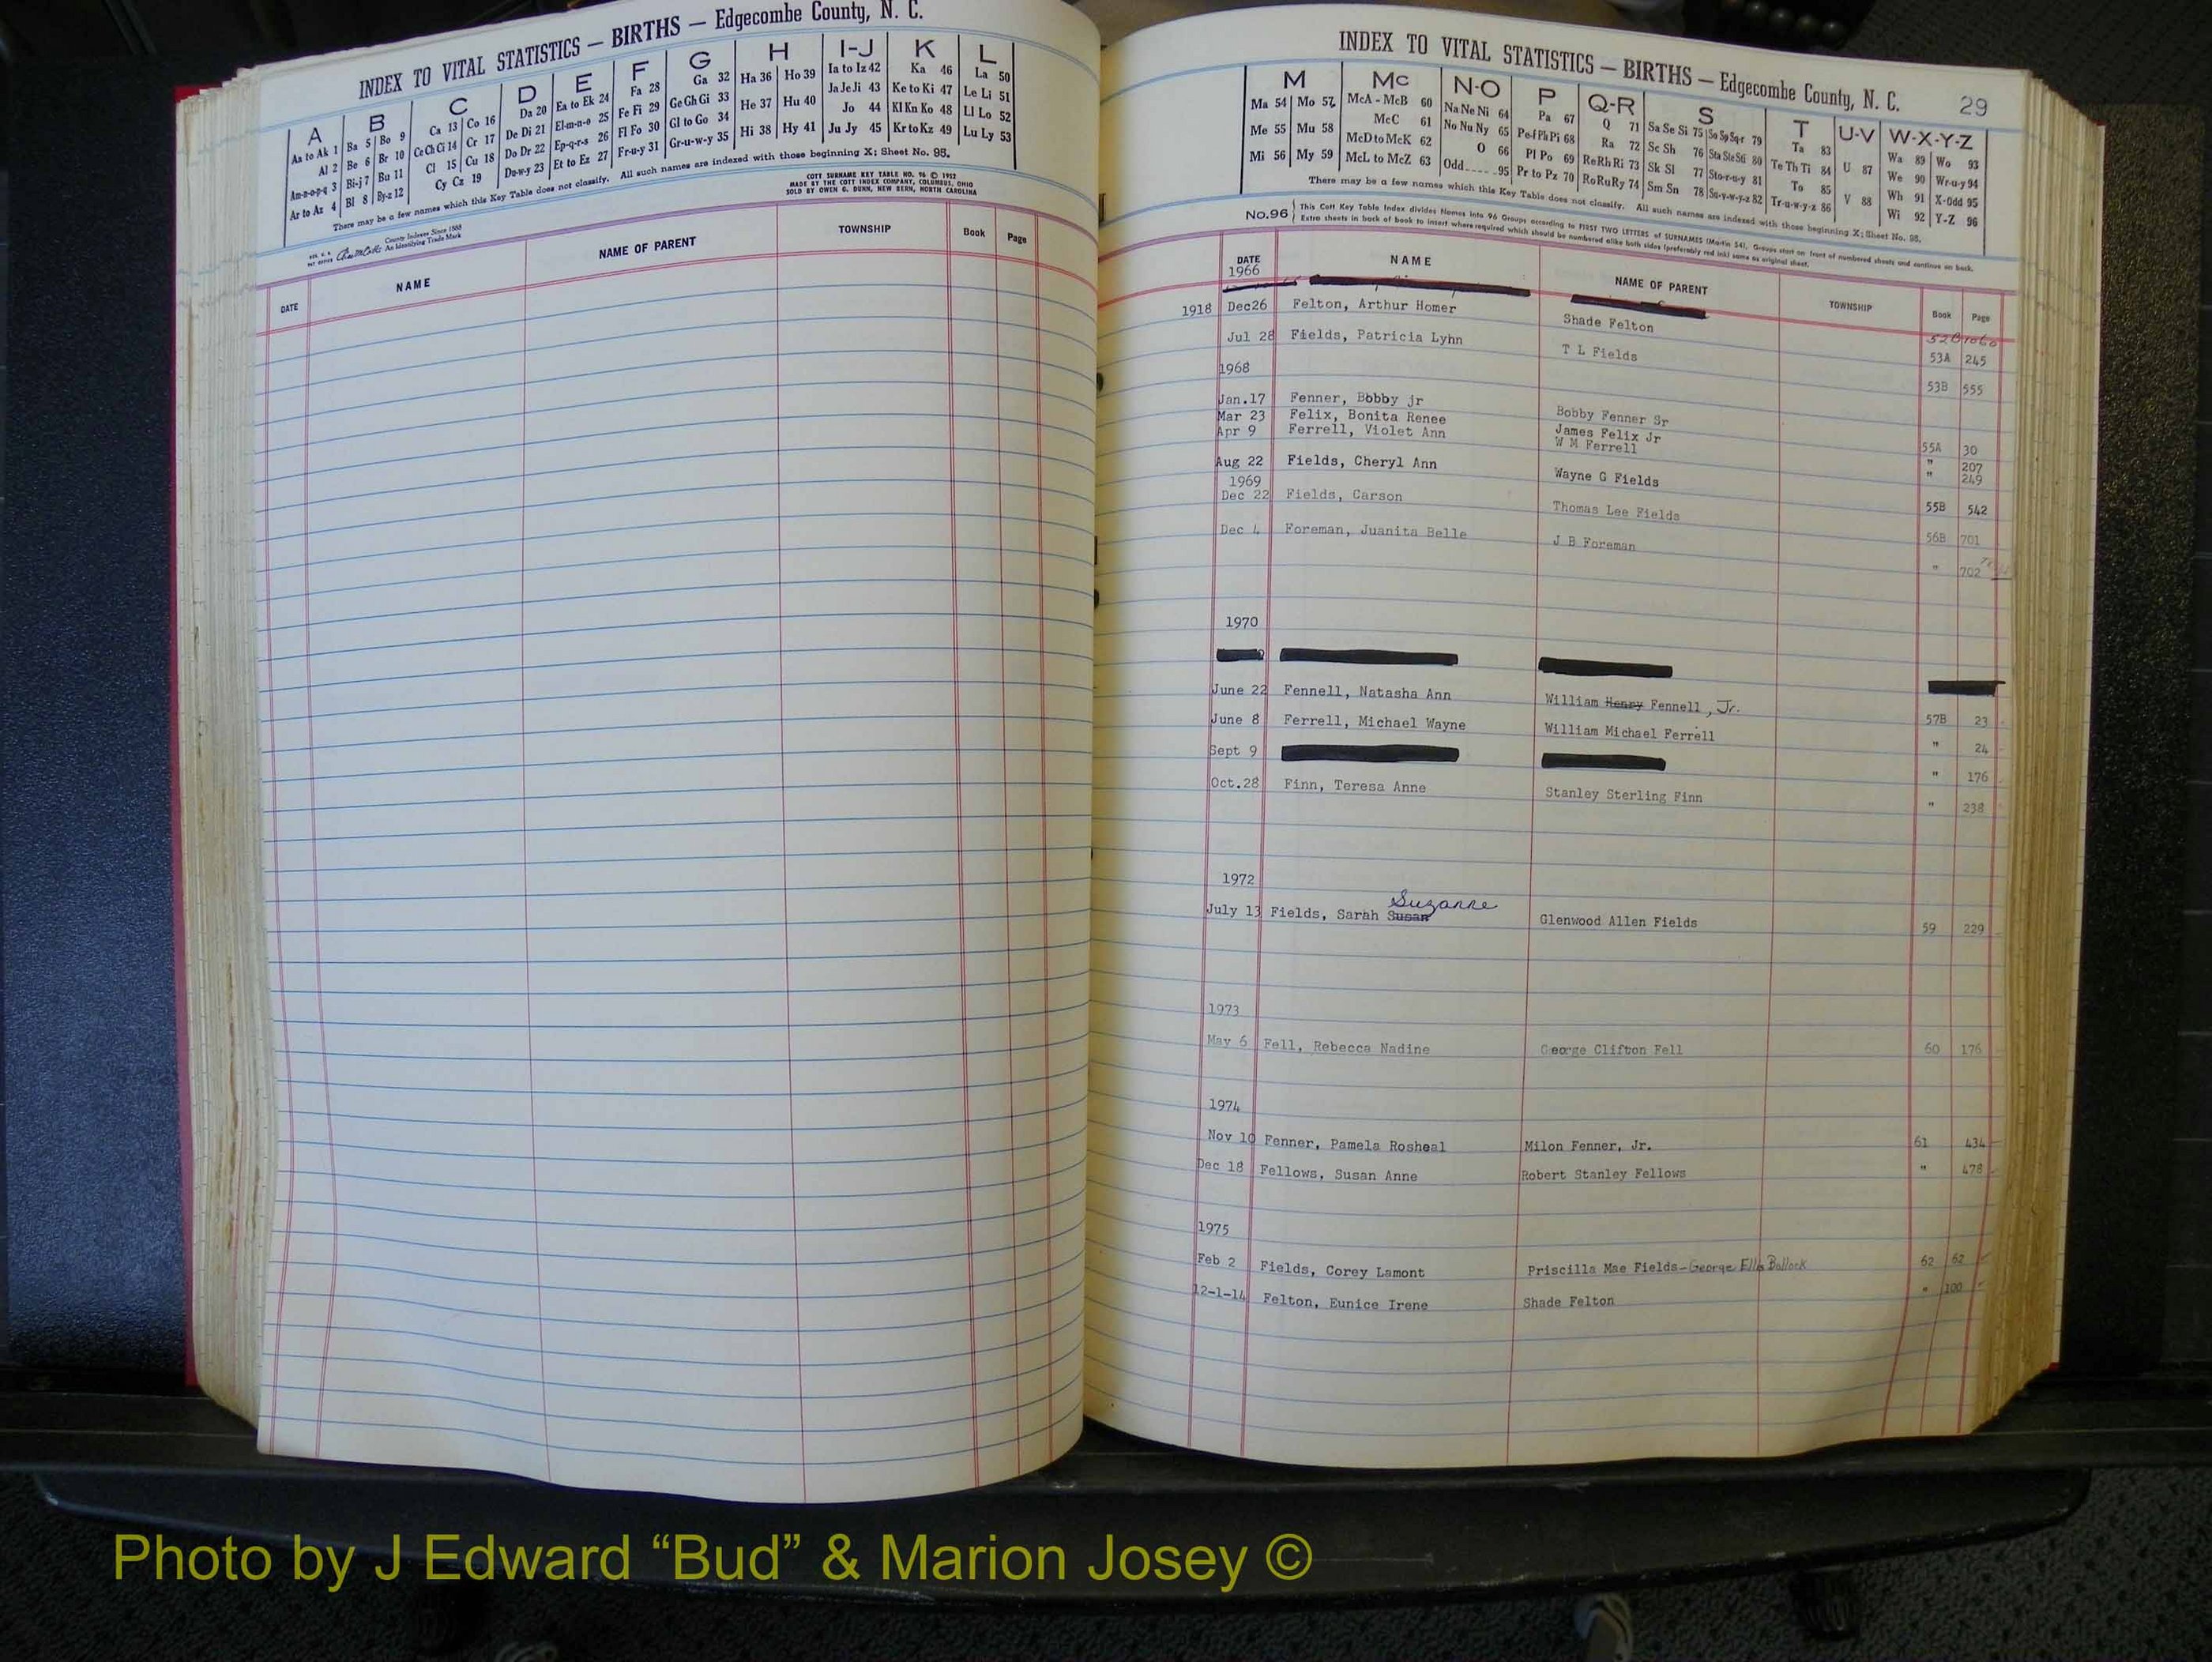 INDEX TO VITAL STATISTICS — BIRTHS — Edgecombe County, N. C.
A B C D E F G H I-J K L
Aa to Ak 1 Ba 5 Bo 9 Ca 13 Co 16 Da 20 Ea to Ek 24 Fa 28 Ga 32 Ha 36 Ho 39 Ia to Iz 42 Ka 46 La 50
Al 2 Be 6 Br 10 Ce Ch Ci 14 Cr 17 De Di 21 El-m-n-o 25 Fe Fi 29 Ge Gh Gi 33 He 37 Hu 40 Ja Je Ji 43 Ke to Ki 47 Le Li 51
Am-n-o-p-q 3 Bi-j 7 Bu 11 Cl 15 Cu 18 Do Dr 22 Ep-q-r-s 26 Fl Fo 30 Gl to Go 34 Hi 38 Hy 41 Jo 44 Kl Kn Ko 48 Ll Lo 52
Ar to Az 4 Bl 8 By-z 12 Cy Cz 19 Du-w-y 23 Et to Ez 27 Fr-u-y 31 Gr-u-w-y 35 Ju Jy 45 Kr to Kz 49 Lu Ly 53
There may be a few names which this Key Table does not classify. All such names are indexed with those beginning X; Sheet No. 95.
COTT SURNAME KEY TABLE NO. 96 © 1952
MADE BY THE COTT INDEX COMPANY, COLUMBUS, OHIO
SOLD BY OWEN G. DUNN, NEW BERN, NORTH CAROLINA
County Indexes Since 1888
An Identifying Trade Mark
DATE NAME NAME OF PARENT TOWNSHIP Book Page
INDEX TO VITAL STATISTICS — BIRTHS — Edgecombe County, N. C. 29
M Mc N-O P Q-R S T U-V W-X-Y-Z
Ma 54 Mo 57 McA - McB 60 Na Ne Ni 64 Pa 67 Q 71 Sa Se Si 75 So Sp Sq-r 79 Ta 83 U 87 Wa 89 Wo 93
Me 55 Mu 58 McC 61 No Nu Ny 65 Pe-f Ph Pi 68 Ra 72 Sc Sh 76 Sta Ste Sti 80 Te Th Ti 84 V 88 We 90 Wr-u-y 94
Mi 56 My 59 McD to McK 62 O 66 Pl Po 69 Re Rh Ri 73 Sk Sl 77 Sto-r-u-y 81 To 85 Wh 91 X-Odd 95
McL to McZ 63 Odd 95 Pr to Pz 70 Ro Ru Ry 74 Sm Sn 78 Su-v-w-y-z 82 Tr-u-w-y-z 86 Wi 92 Y-Z 96
There may be a few names which this Key Table does not classify. All such names are indexed with those beginning X; Sheet No. 95.
No. 96 This Cott Key Table Index divides Names into 96 Groups according to FIRST TWO LETTERS of SURNAMES (Martin 54). Groups start on front of numbered sheets and continue on back.
Extra sheets in back of book to insert where required which should be numbered alike both sides (preferably red ink) same as original sheet.
DATE NAME NAME OF PARENT TOWNSHIP Book Page
1966
1918 Dec26 Felton, Arthur Homer Shade Felton 53A 245
Jul 28 Fields, Patricia Lyhn T L Fields 53B 555
1968
Jan.17 Fenner, Bobby jr Bobby Fenner Sr 55A 30
Mar 23 Felix, Bonita Renee James Felix Jr " 207
Apr 9 Ferrell, Violet Ann W M Ferrell " 249
Aug 22 Fields, Cheryl Ann Wayne G Fields 55B 542
1969
Dec 22 Fields, Carson Thomas Lee Fields 56B 701
Dec 4 Foreman, Juanita Belle J B Foreman " 702
1970
June 22 Fennell, Natasha Ann William Henry Fennell, Jr. 57B 23
June 8 Ferrell, Michael Wayne William Michael Ferrell " 24
Sept 9 " 176
Oct.28 Finn, Teresa Anne Stanley Sterling Finn " 238
1972
Suzanne
July 13 Fields, Sarah Susan Glenwood Allen Fields 59 229
1973
May 6 Fell, Rebecca Nadine George Clifton Fell 60 176
1974
Nov 10 Fenner, Pamela Rosheal Milon Fenner, Jr. 61 434
Dec 18 Fellows, Susan Anne Robert Stanley Fellows " 478
1975
Feb 2 Fields, Corey Lamont Priscilla Mae Fields-George Ellis Bullock 62 62
12-1-14 Felton, Eunice Irene Shade Felton " 100
Photo by J Edward “Bud” & Marion Josey ©